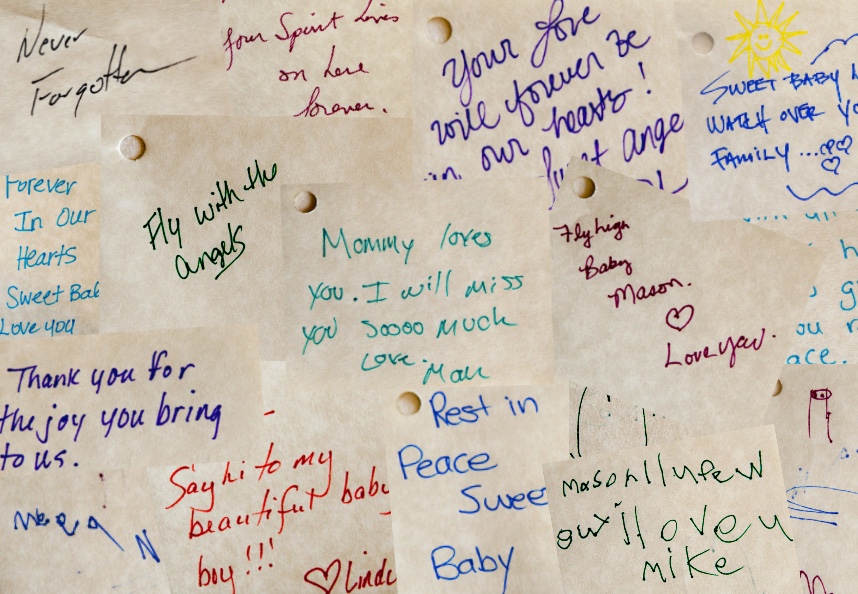 Never
Forgotten
Your Spirit Lives
on here
forever.
Your love
will forever be
in our hearts!
ange
SWEET BABY
WATCH OVER
FAMILY ...
Forever
In Our
Hearts
Sweet Bab
Love you
Fly with the
angels
Mommy loves
you. I will miss
you soooo much
Love.
Fly high
Baby
Mason.
Love you.
ace.
Thank you for
the joy you bring
to us.
N
Say hi to my
beautiful baby
boy!!!
Linda
Rest in
Peace
Sweet
Baby
mason
I love u
mike